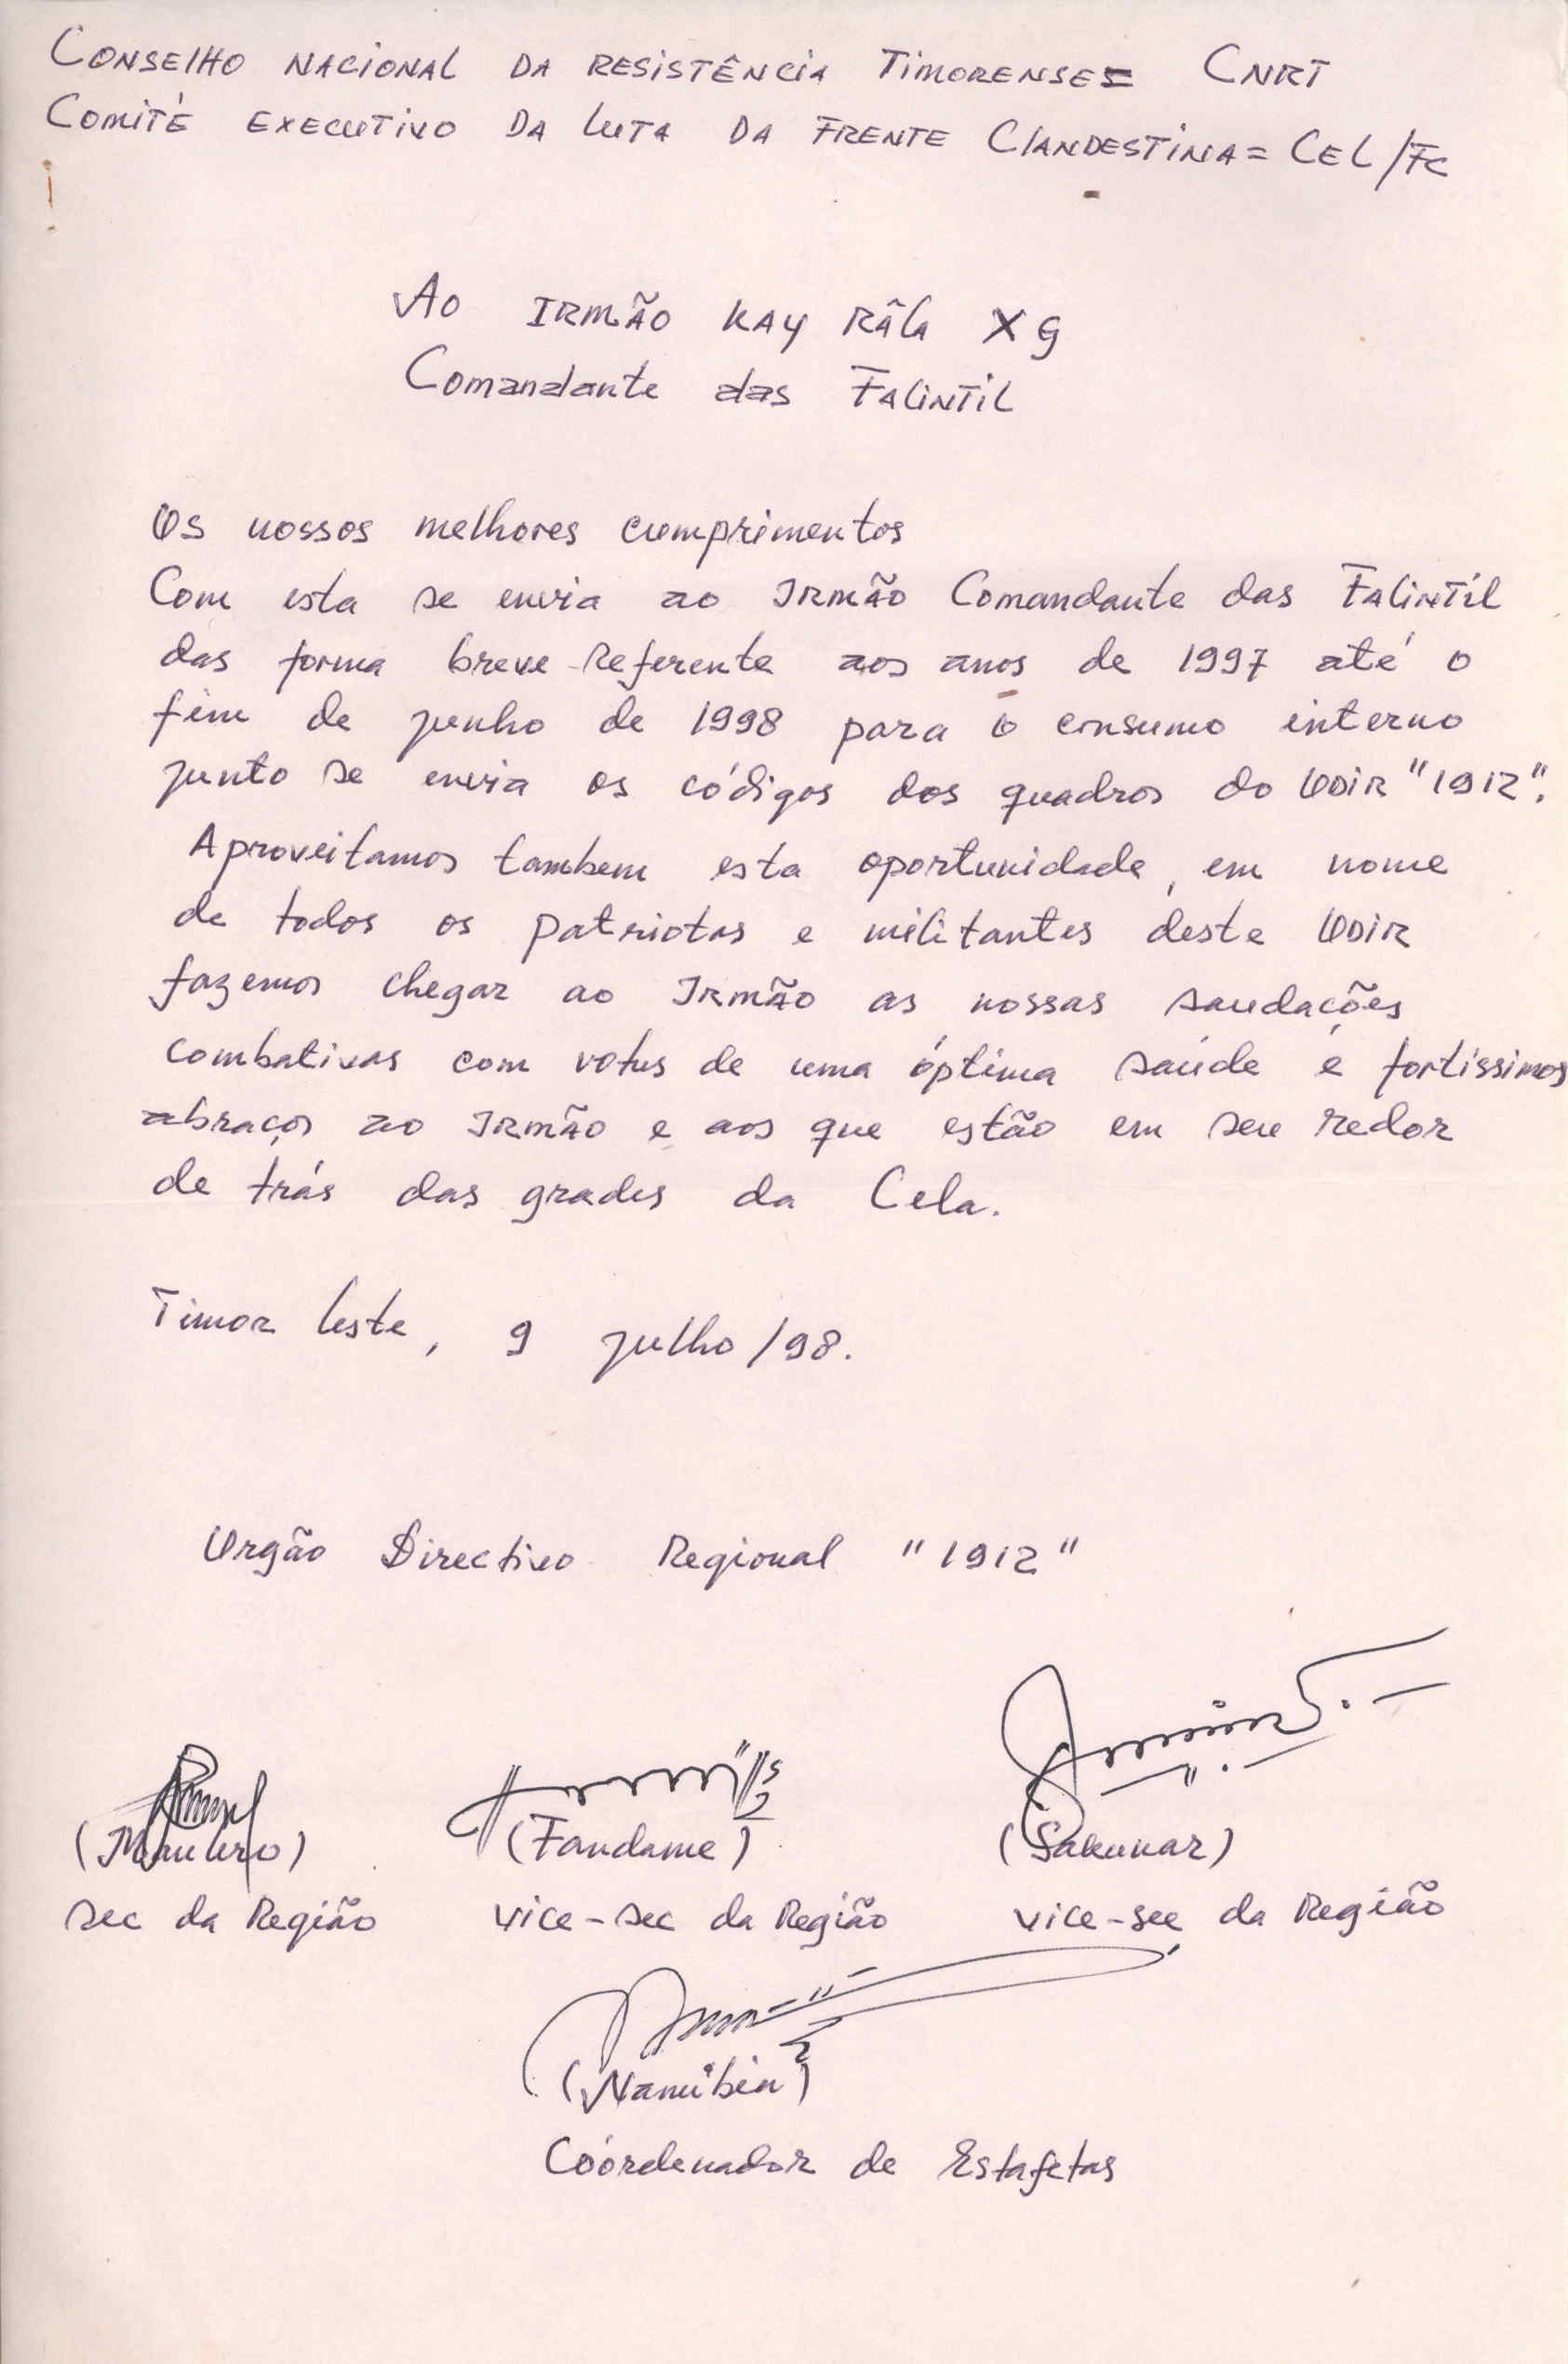 CONSELHO NACIONAL DA RESISTÊNCIA TIMORENSE= CNRT
COMITÉ EXECUTIVO DA LUTA DA FRENTE CLANDESTINA= CEL/FC
AO IRMÃO KAY RÂLA XG
Comandante das FALINTIL
Os nossos melhores cumprimentos
Com esta se envia ao IRMÃO Comandante das FALINTIL
das forma breve Referente aos anos de 1997 até o
fim de junho de 1998 para o consumo interno
junto se envia os códigos dos quadros do ODIR "1912".
Aproveitamos tambem esta oportunidade, em nome
de todos os patriotas e militantes deste ODIR
fazemos chegar ao IRMÃO as nossas saudações
combativas com votus de uma óptima saúde e fortissimos
abraços ao IRMÃO e aos que estão em seu redor
de trás das grades da Cela.
Timor Leste, 9 julho/98.
Orgão Directivo Regional "1912"
(Fandame) (Sakunar)
sec da Região vice-sec da Região vice-sec da Região
(Namibin)
Coórdenador de Estafetas